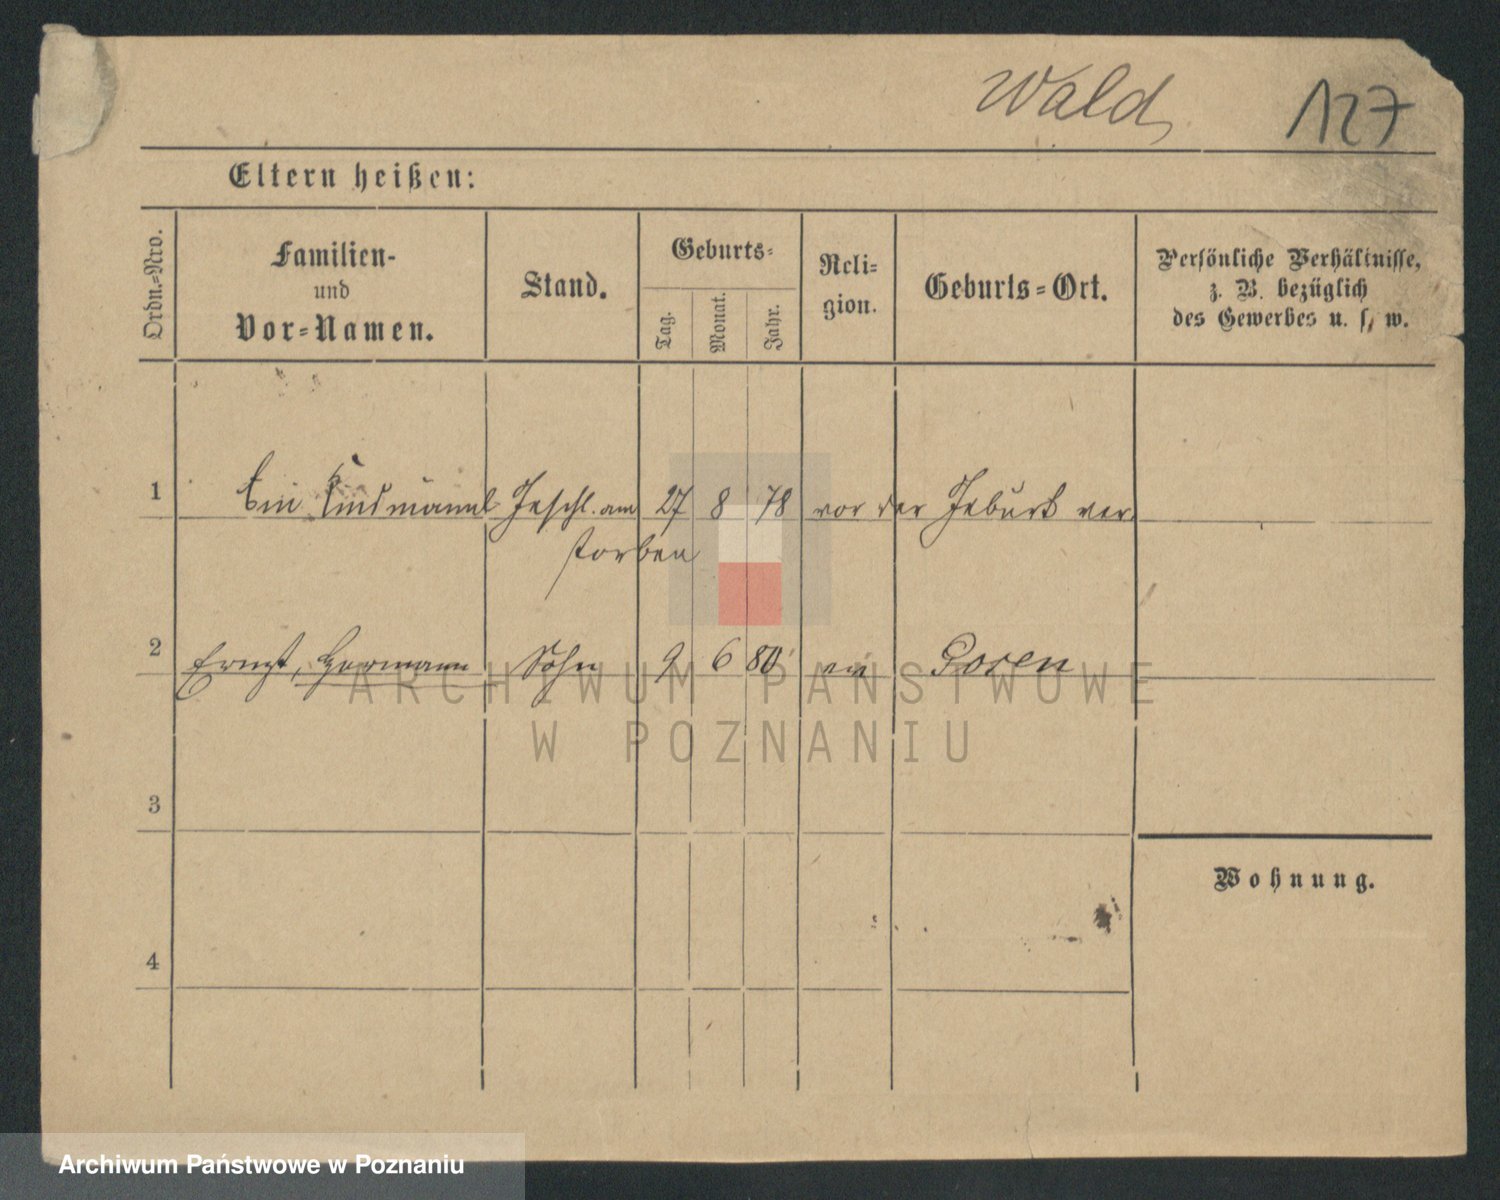 Wald
127
Eltern heißen:
Ordn.-Nro.
Familien-
und
Vor-Namen.
Stand.
Geburts-
Tag.
Monat.
Jahr.
Reli-
gion.
Geburts-Ort.
Persönliche Verhältnisse,
z. B. bezüglich
des Gewerbes u. s. w.
1 Ein Kind männl. Geschl. am 27 8 78 vor der Geburt ver
storben
2 Ernst, Hermann Sohn 9 6 80 ev Posen
3
4
Wohnung.
ARCHIWUM PAŃSTWOWE
W POZNANIU
Archiwum Państwowe w Poznaniu